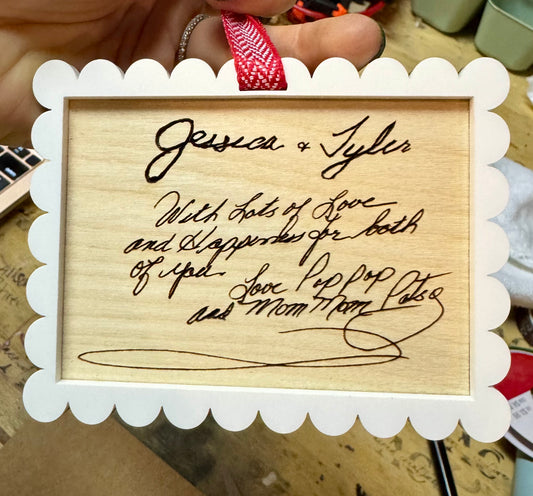 Jessica & Tyler
With Lots of Love
and Happiness for both
of you.
Love Pop Pop
and Mom Mom Patsy